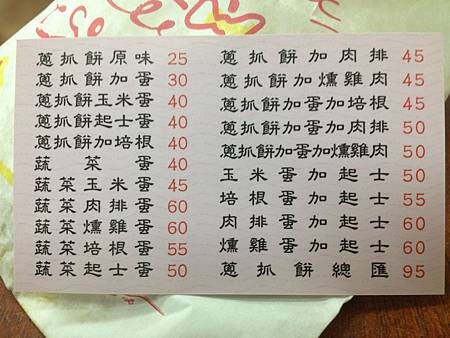 蔥抓餅原味 25
蔥抓餅加蛋 30
蔥抓餅玉米蛋 40
蔥抓餅起士蛋 40
蔥抓餅加培根 40
蔬菜蛋 40
蔬菜玉米蛋 45
蔬菜肉排蛋 60
蔬菜燻雞蛋 60
蔬菜培根蛋 55
蔬菜起士蛋 50
蔥抓餅加肉排 45
蔥抓餅加燻雞肉 45
蔥抓餅加蛋加培根 45
蔥抓餅加蛋加肉排 50
蔥抓餅加蛋加燻雞肉 50
玉米蛋加起士 50
培根蛋加起士 55
肉排蛋加起士 60
燻雞蛋加起士 60
蔥抓餅總匯 95